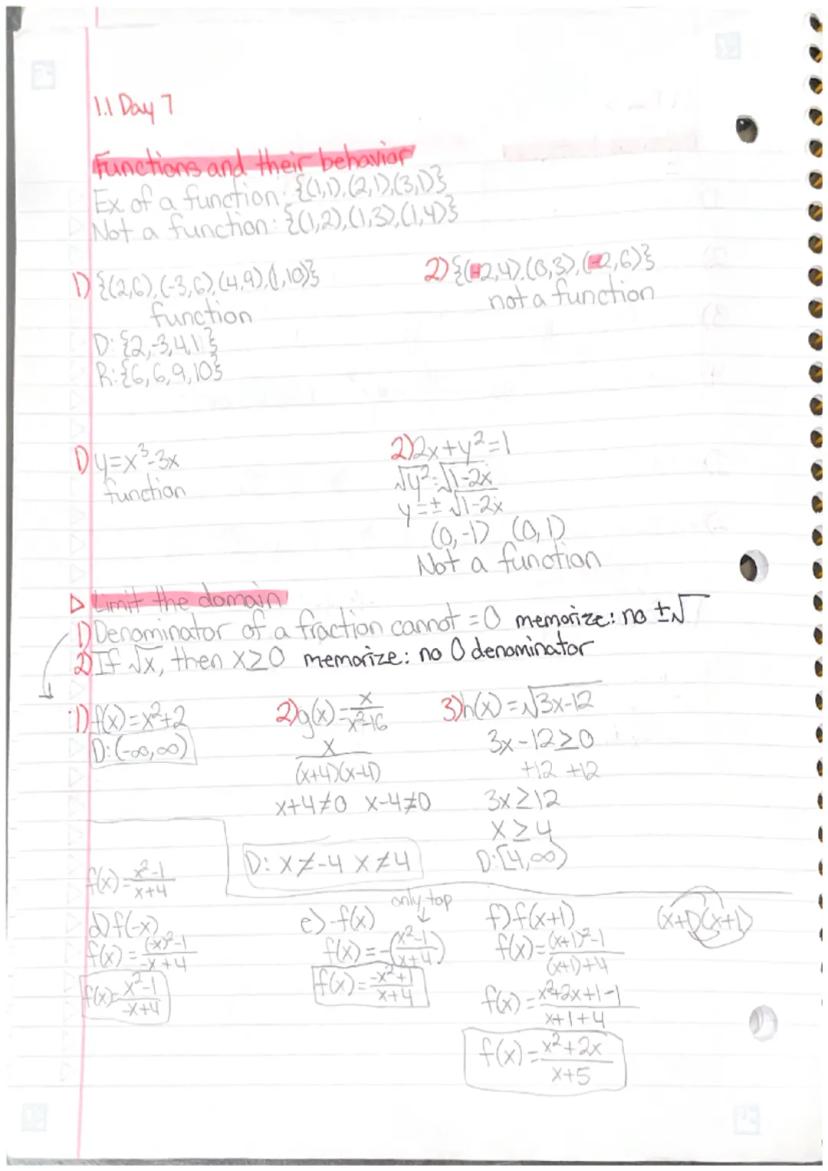 1.1 Day 7
Functions and their behavior
Ex of a function: {(1,1),(2,1),(3,1)}
Not a function: {(1,2),(1,3),(1,4)}
1) {(2,6),(-3,6),(4,9),(1,10)}
function
D: {2,-3,4,1}
R: {6,6,9,10}
2) {(-2,4),(0,3),(-2,6)}
not a function
1) y=x³-3x
function
2) 2x+y²=1
√y²=√1-2x
y=±√1-2x
(0,-1) (0,1)
Not a function
Limit the domain
1) Denominator of a fraction cannot =0 memorize: no ±√
2) If √x, then x≥0 memorize: no 0 denominator
1) f(x)=x²+2
D: (-∞,∞)
2) g(x)=x/x²-16
x/(x+4)(x-4)
x+4≠0 x-4≠0
D: x≠-4 x≠4
3) h(x)=√3x-12
3x-12≥0
+12 +12
3x≥12
x≥4
D: [4,∞)
f(x)=x²-1/x+4
d) f(-x)
f(x)=(-x)²-1/-x+4
f(x)=x²-1/-x+4
e) -f(x)
only top
f(x)=-(x²-1/x+4)
f(x)=-x²+1/x+4
f) f(x+1)
f(x)=(x+1)²-1/(x+1)+4
f(x)=x²+2x+1-1/x+1+4
f(x)=x²+2x/x+5
(x+1)(x+1)